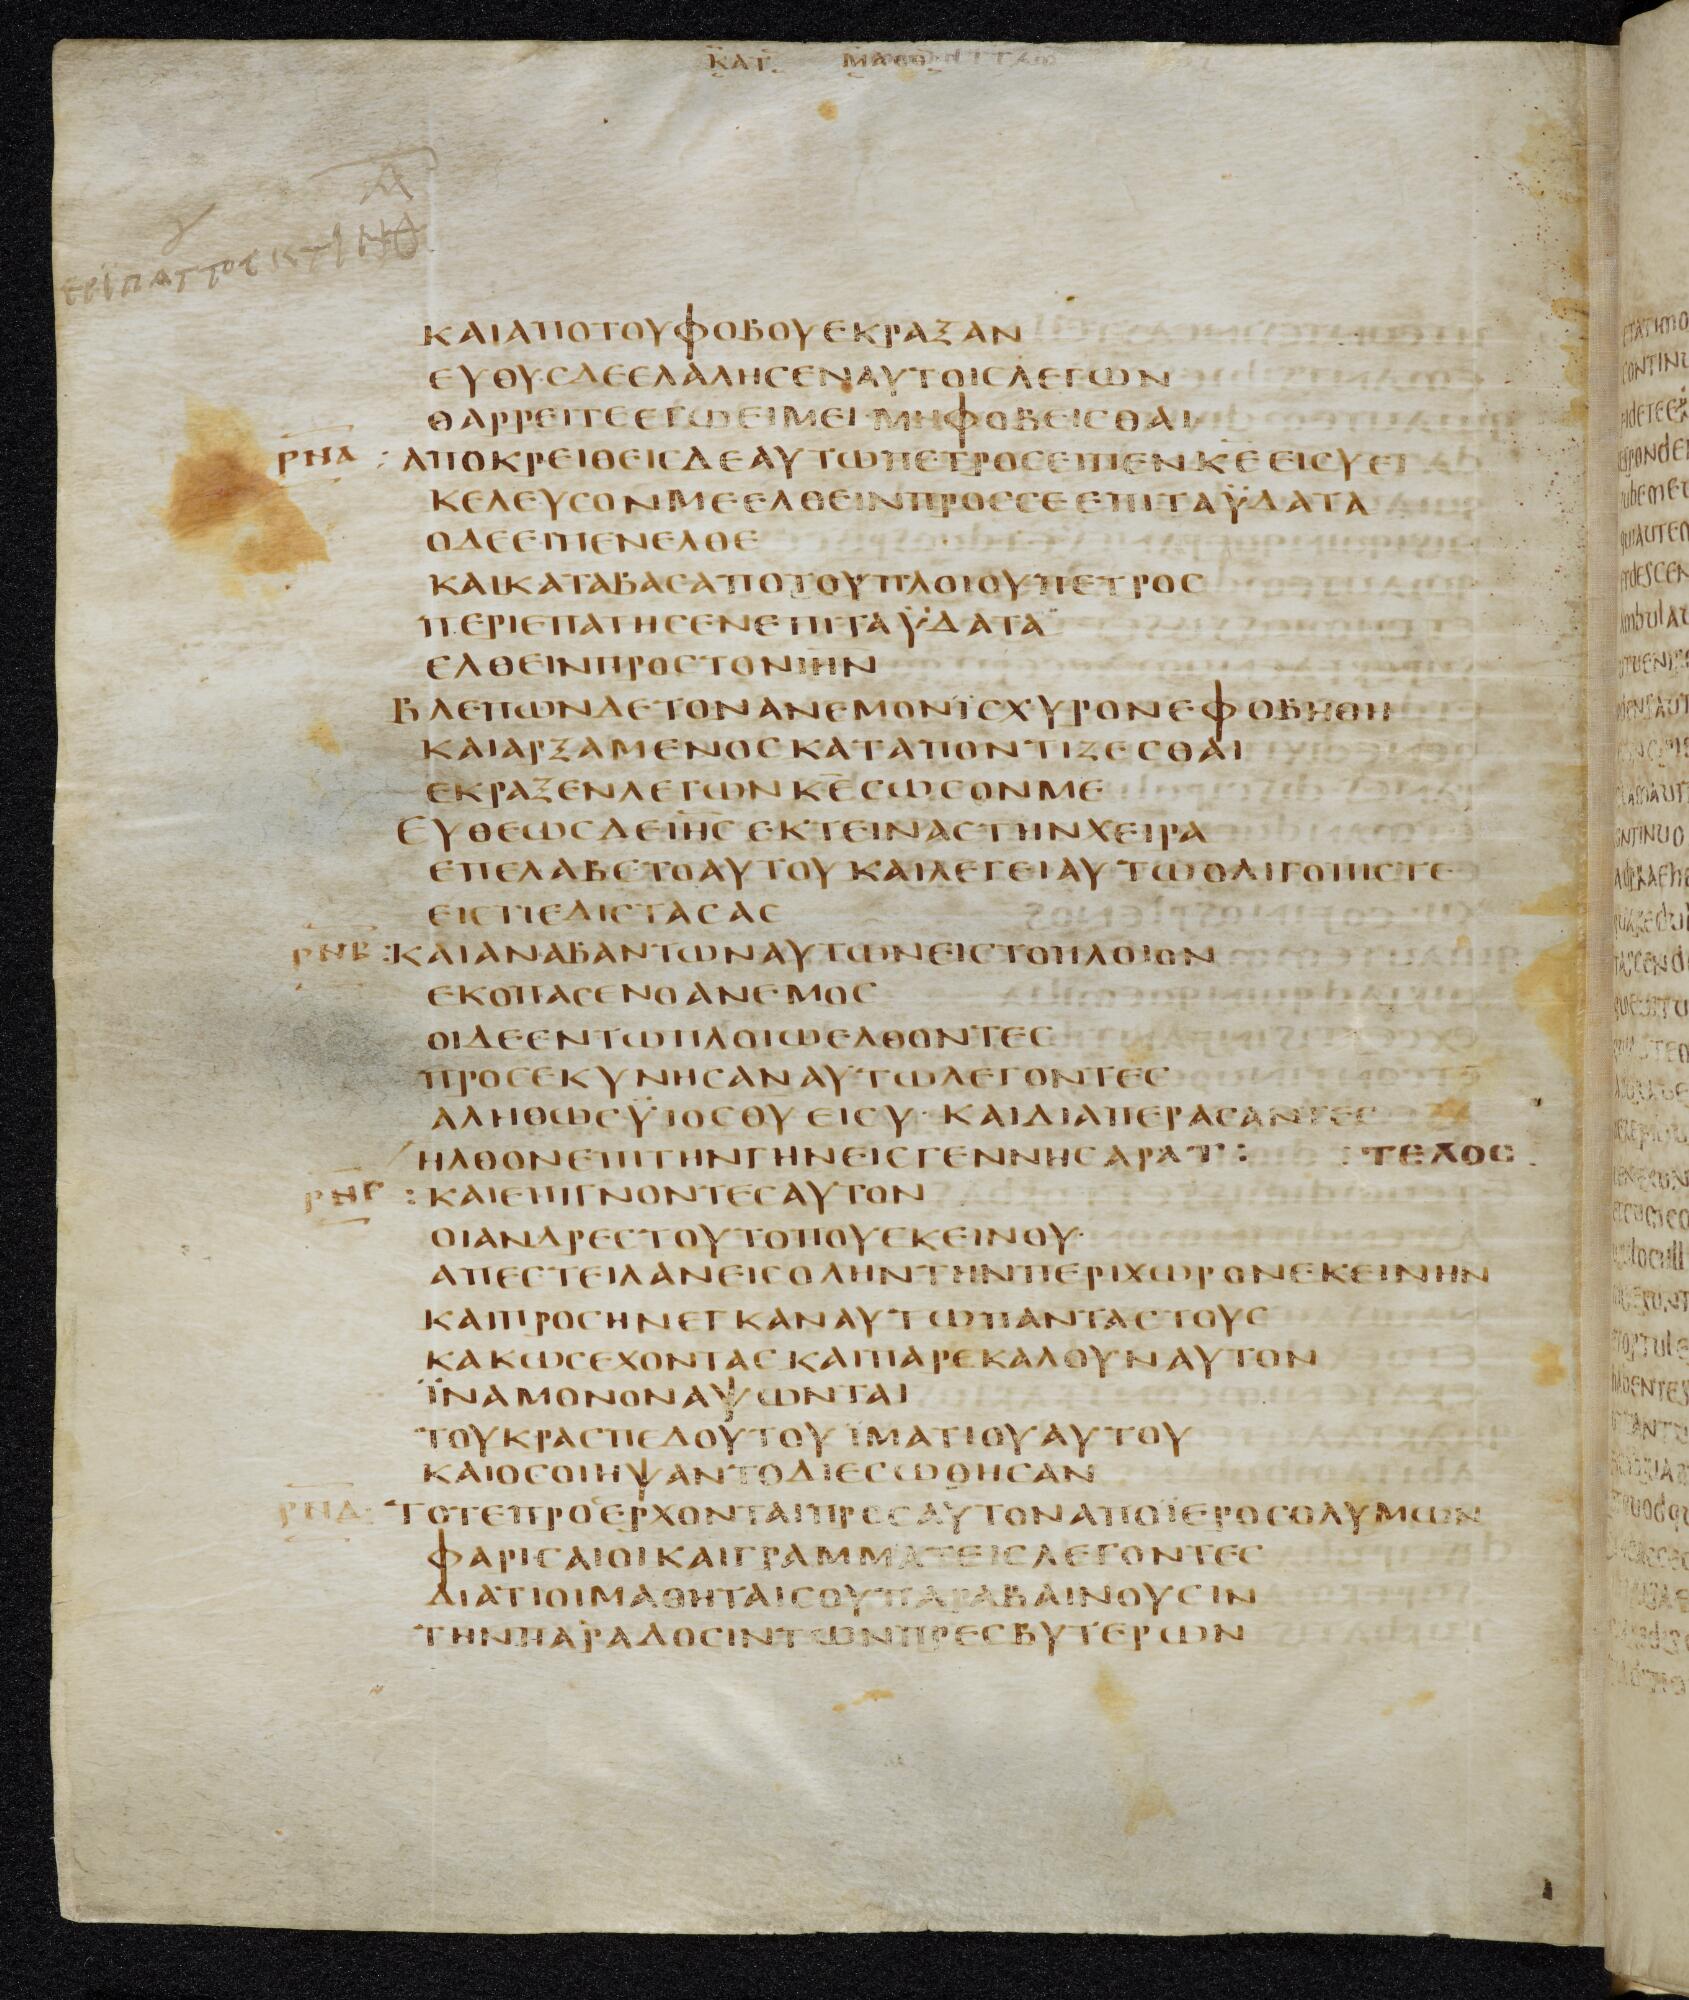 ΚΑΤ ΜΑΘΘ
ΚΑΙΑΠΟΤΟΥΦΟΒΟΥΕΚΡΑΞΑΝ
ΕΥΘΥΣΔΕΕΛΑΛΗΣΕΝΑΥΤΟΙΣΛΕΓΩΝ
ΘΑΡΡΕΙΤΕΕΓΩΕΙΜΕΙ·ΜΗΦΟΒΕΙΣΘΑΙ
ΡΝΑ : ΑΠΟΚΡΕΙΘΕΙΣΔΕΑΥΤΩΠΕΤΡΟΣΕΙΠΕΝΚ̅Ε̅ΕΙΣΥΕΙ
ΚΕΛΕΥΣΟΝΜΕΕΛΘΕΙΝΠΡΟΣΣΕΕΠΙΤΑΫΔΑΤΑ
ΟΔΕΕΙΠΕΝΕΛΘΕ
ΚΑΙΚΑΤΑΒΑΣΑΠΟΤΟΥΠΛΟΙΟΥΠΕΤΡΟΣ
ΠΕΡΙΕΠΑΤΗΣΕΝΕΠΙΤΑΫΔΑΤΑ
ΕΛΘΕΙΝΠΡΟΣΤΟΝΙ̅Η̅Ν̅
ΒΛΕΠΩΝΔΕΤΟΝΑΝΕΜΟΝΪΣΧΥΡΟΝΕΦΟΒΗΘΗ
ΚΑΙΑΡΞΑΜΕΝΟΣΚΑΤΑΠΟΝΤΙΖΕΣΘΑΙ
ΕΚΡΑΞΕΝΛΕΓΩΝΚ̅Ε̅ΣΩΣΟΝΜΕ
ΕΥΘΕΩΣΔΕΙ̅Η̅Σ̅ΕΚΤΕΙΝΑΣΤΗΝΧΕΙΡΑ
ΕΠΕΛΑΒΕΤΟΑΥΤΟΥΚΑΙΛΕΓΕΙΑΥΤΩΟΛΙΓΟΠΙΣΤΕ
ΕΙΣΤΙΕΔΙΣΤΑΣΑΣ
ΡΝΒ :ΚΑΙΑΝΑΒΑΝΤΩΝΑΥΤΩΝΕΙΣΤΟΠΛΟΙΟΝ
ΕΚΟΠΑΣΕΝΟΑΝΕΜΟΣ
ΟΙΔΕΕΝΤΩΠΛΟΙΩΕΛΘΟΝΤΕΣ
ΠΡΟΣΕΚΥΝΗΣΑΝΑΥΤΩΛΕΓΟΝΤΕΣ
ΑΛΗΘΩΣΫΙΟΣΘΥΕΙΣΥ· ΚΑΙΔΙΑΠΕΡΑΣΑΝΤΕΣ
ΗΛΘΟΝΕΠΙΤΗΝΓΗΝΕΙΣΓΕΝΝΗΣΑΡΑΤ : : ΤΕΛΟΣ
ΡΝΓ : ΚΑΙΕΠΙΓΝΟΝΤΕΣΑΥΤΟΝ
ΟΙΑΝΔΡΕΣΤΟΥΤΟΠΟΥΕΚΕΙΝΟΥ·
ΑΠΕΣΤΕΙΛΑΝΕΙΣΟΛΗΝΤΗΝΠΕΡΙΧΩΡΟΝΕΚΕΙΝΗΝ
ΚΑΙΠΡΟΣΗΝΕΓΚΑΝΑΥΤΩΠΑΝΤΑΣΤΟΥΣ
ΚΑΚΩΣΕΧΟΝΤΑΣΚΑΙΠΑΡΕΚΑΛΟΥΝΑΥΤΟΝ
ΪΝΑΜΟΝΟΝΑΨΩΝΤΑΙ
ΤΟΥΚΡΑΣΠΕΔΟΥΤΟΥΪΜΑΤΙΟΥΑΥΤΟΥ
ΚΑΙΟΣΟΙΗΨΑΝΤΟΔΙΕΣΩΘΗΣΑΝ
ΡΝΔ: ΤΟΤΕΠΡΟΣΕΡΧΟΝΤΑΙΠΡΟΣΑΥΤΟΝΑΠΟΪΕΡΟΣΟΛΥΜΩΝ
ΦΑΡΙΣΑΙΟΙΚΑΙΓΡΑΜΜΑΤΕΙΣΛΕΓΟΝΤΕΣ
ΔΙΑΤΙΟΙΜΑΘΗΤΑΙΣΟΥΠΑΡΑΒΑΙΝΟΥΣΙΝ
ΤΗΝΠΑΡΑΔΟΣΙΝΤΩΝΠΡΕΣΒΥΤΕΡΩΝ